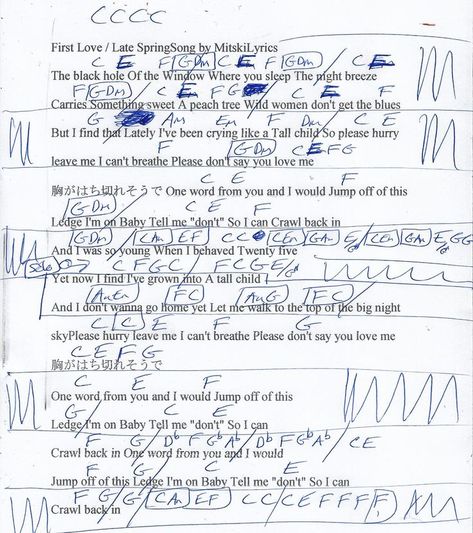 C C C C
First Love / Late SpringSong by MitskiLyrics
C E F (G Dm) C E F (G Dm) / C E
The black hole Of the Window Where you sleep The night breeze
F (G Dm) / C E F G / C E F
Carries Something sweet A peach tree Wild women don't get the blues
G Am Em F Dm / C E
But I find that Lately I've been crying like a Tall child So please hurry
F (G Dm) C E F G
leave me I can't breathe Please don't say you love me
C E F
胸がはち切れそうで One word from you and I would Jump off of this
(G Dm) / C E F
Ledge I'm on Baby Tell me "don't" So I can Crawl back in
(G Dm) / (C Am) (E F) C C
And I was so young When I behaved Twenty five
Solo C F G C / F C G E
Yet now I find I've grown into A tall child
(F C)
And I don't wanna go home yet Let me walk to the top of the big night
C (C) E F G
skyPlease hurry leave me I can't breathe Please don't say you love me
C E F G
胸がはち切れそうで
C E F
One word from you and I would Jump off of this
G / C E
Ledge I'm on Baby Tell me "don't" So I can
F G / Db F Gb Ab / Db F Gb Ab / C E
Crawl back in One word from you and I would
F G / C E
Jump off of this Ledge I'm on Baby Tell me "don't" So I can
F G / G / (C Am) (E F) C C / C E F F F (F)
Crawl back in